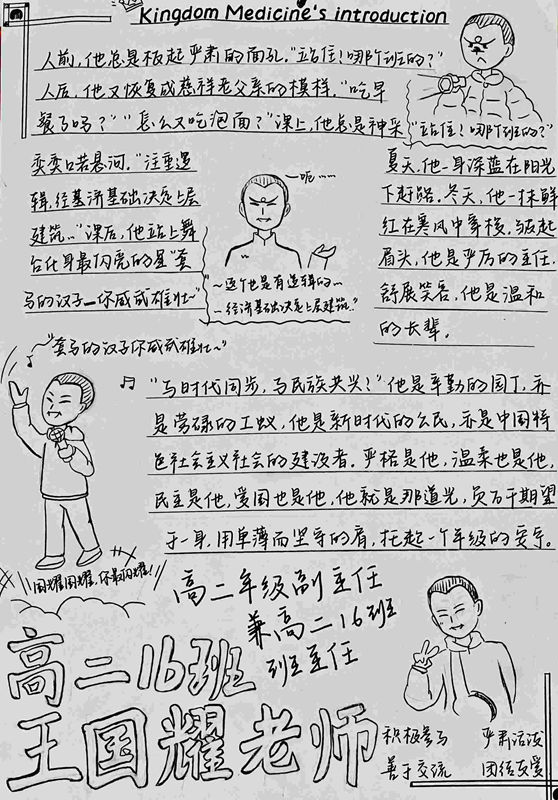 Kingdom Medicine's introduction
人前，他总是板起严肃的面孔。“站住！哪个班的？”
人后，他又恢复成慈祥老父亲的模样。“吃早
餐了吗？”“怎么又吃泡面？”课上，他总是神采
“站住！哪个班的？”
奕奕口若悬河。“注重逻
辑，经济基础决定上层
建筑…”课后，他站上舞
台化身最闪亮的星“套
马的汉子—你威武雄壮~”
~呃……
“~这个他是有逻辑的~
—经济基础决定上层建筑。”
夏天，他一身深蓝在阳光
下赶路。冬天，他一抹鲜
红在寒风中穿梭。皱起
眉头，他是严厉的主任。
舒展笑容，他是温和
的长辈。
“套马的汉子你威武雄壮~”
“与时代同步，与民族共兴！”他是辛勤的园丁，亦
是劳碌的工蚁，他是新时代的公民，亦是中国特
色社会主义社会的建设者。严格是他，温柔也是他，
民主是他，爱国也是他，他就是那道光，负万千期望
于一身，用单薄而坚等的肩，托起一个年级的
国耀国耀，你最闪耀！
高二年级副主任
兼高二16班
班主任
高二16班
王国耀老师
积极参与 严肃活泼
善于交流 团结友爱